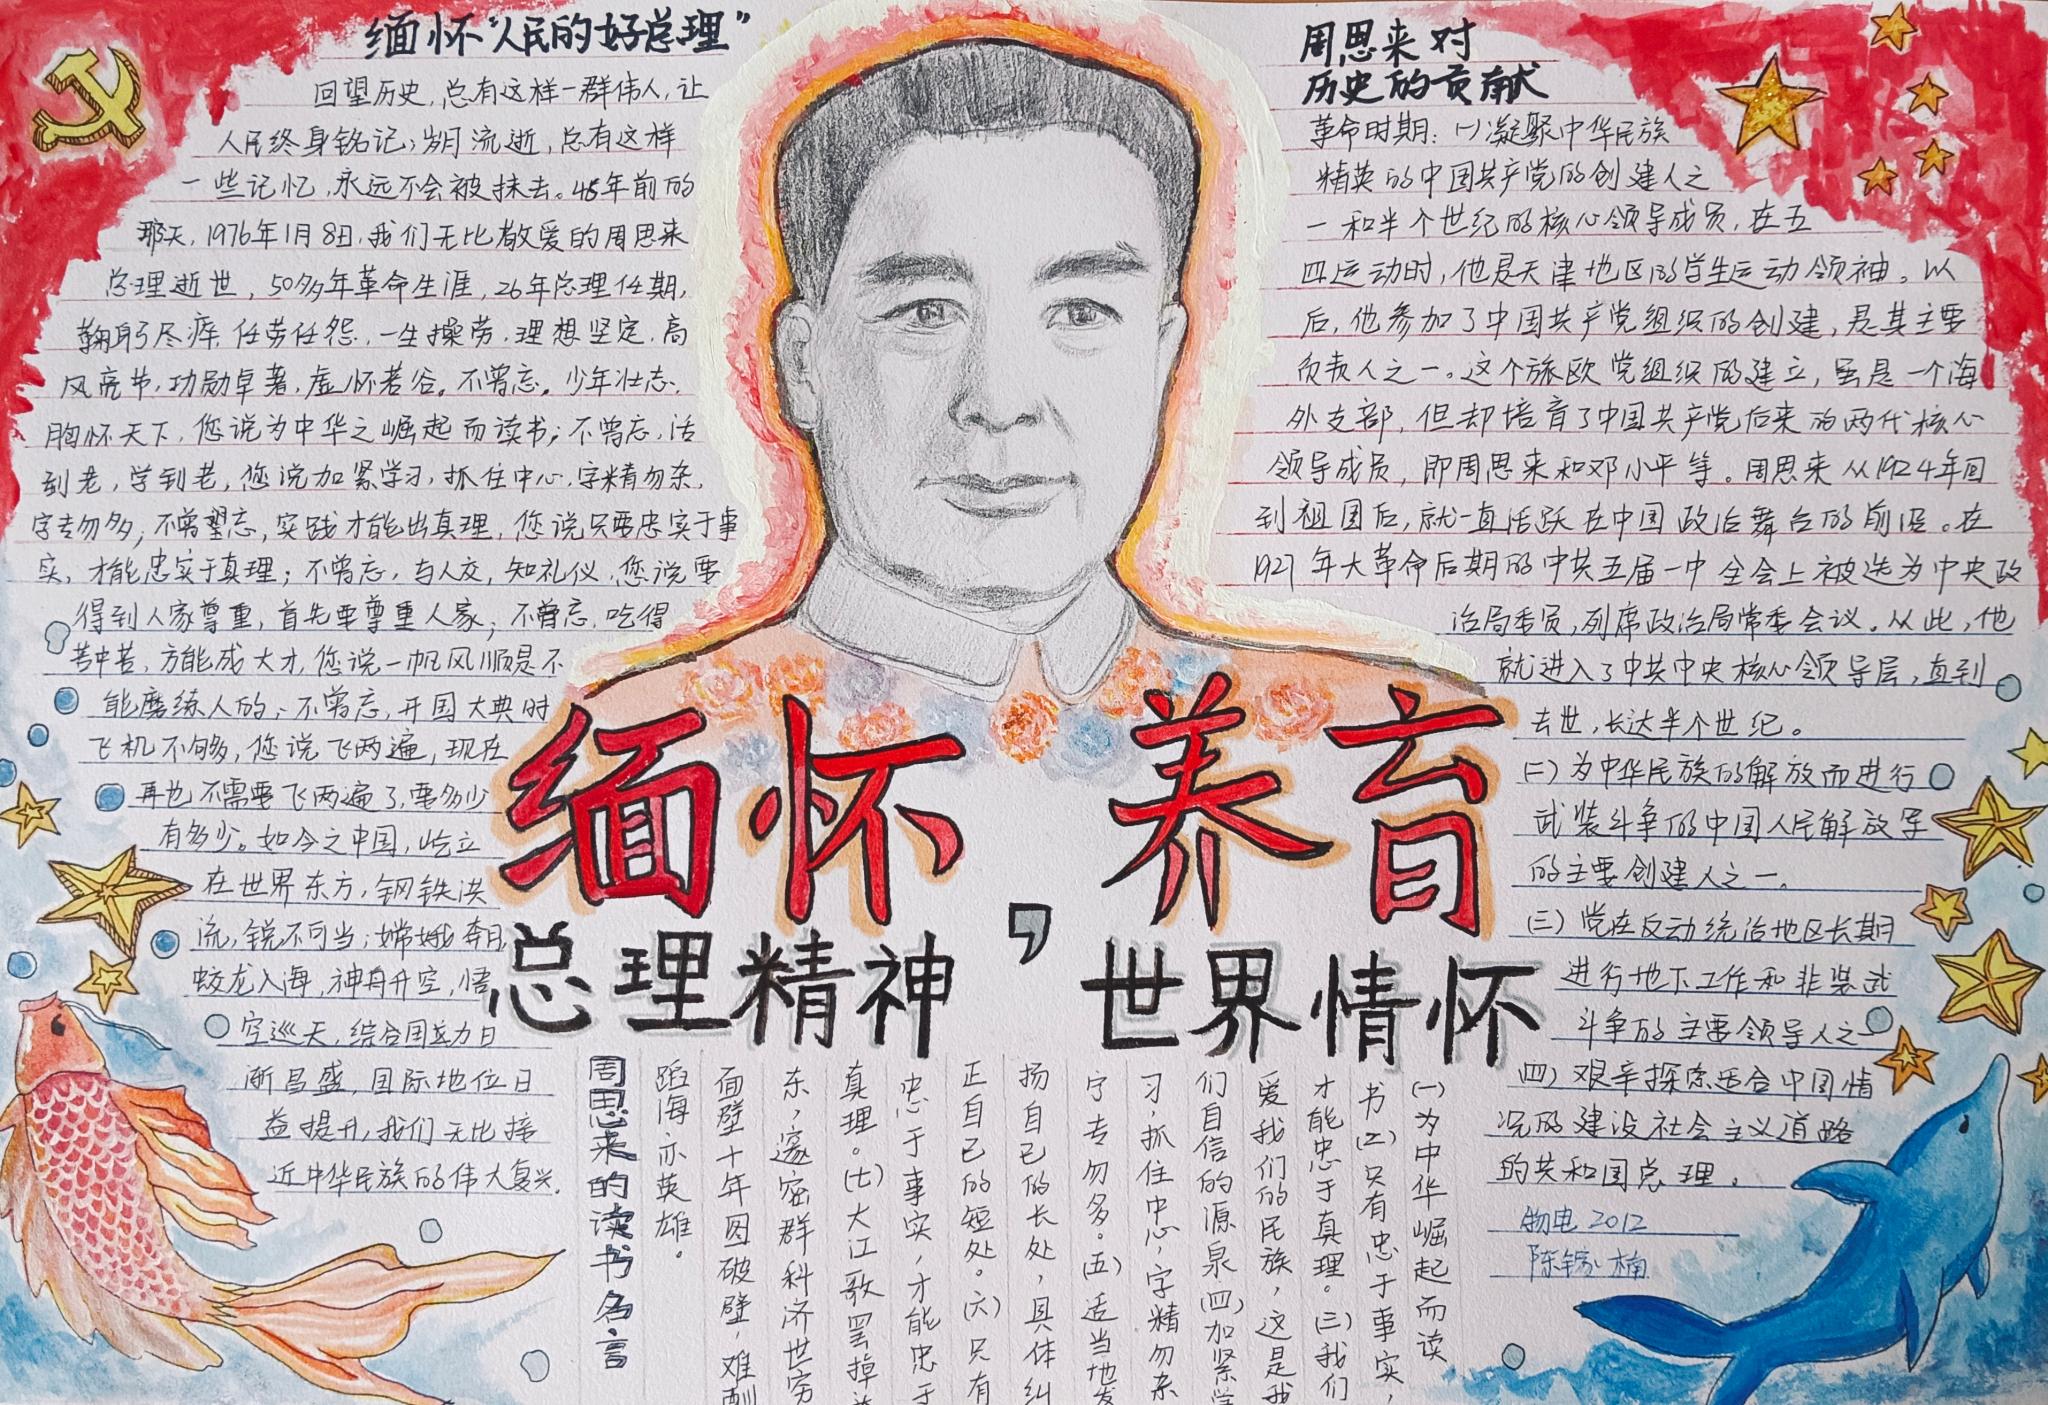 缅怀“人民的好总理”
回望历史，总有这样一群伟人，让
人民终身铭记；岁月流逝，总有这样
一些记忆，永远不会被抹去。45年前的
那天，1976年1月8日，我们无比敬爱的周恩来
总理逝世，50多年革命生涯，26年总理任期，
鞠躬尽瘁，任劳任怨，一生操劳，理想坚定，高
风亮节，功勋卓著，虚怀若谷。不曾忘。少年壮志，
胸怀天下，您说为中华之崛起而读书；不曾忘，活
到老，学到老，您说加紧学习，抓住中心，字精勿杂，
字专勿多；不曾望忘，实践才能出真理，您说只要忠实于事
实，才能忠实于真理；不曾忘，与人交，知礼仪，您说要
得到人家尊重，首先要尊重人家；不曾忘，吃得
苦中苦，方能成大才，您说一帆风顺是不
能磨练人的；不曾忘，开国大典时
飞机不够，您说飞两遍，现在
再也不需要飞两遍了，要多少
有多少。如今之中国，屹立
在世界东方，钢铁洪
流，锐不可当；嫦娥奔月，
蛟龙入海，神舟升空，悟
空巡天，综合国力日
渐昌盛，国际地位日
益提升，我们无比接
近中华民族的伟大复兴。
周恩来对
历史的贡献
革命时期：(一)凝聚中华民族
精英的中国共产党的创建人之
一和半个世纪的核心领导成员，在五
四运动时，他是天津地区的学生运动领袖。以
后，他参加了中国共产党组织的创建，是其主要
负责人之一。这个旅欧党组织的建立，虽是一个海
外支部，但却培育了中国共产党后来的两代核心
领导成员，即周恩来和邓小平等。周恩来从1924年回
到祖国后，就一直活跃在中国政治舞台的前沿。在
1927年大革命后期的中共五届一中全会上被选为中央政
治局委员，列席政治局常委会议。从此，他
就进入了中共中央核心领导层，直到
去世，长达半个世纪。
(二)为中华民族的解放而进行
武装斗争的中国人民解放军
的主要创建人之一。
(三)党在反动统治地区长期
进行地下工作和非装武
斗争的主要领导人之一
四)艰辛探索适合中国情
况的建设社会主义道路
的共和国总理。
物电2012
缅怀 养育
总理精神，世界情怀
周恩来的读书名言
(一)为中华崛起而读
书(二)只有忠于事实，
才能忠于真理。(三)我们
爱我们的民族，这是我
们自信的源泉(四)加紧学
习，抓住中心，字精勿杂
字专勿多。(五)适当地发
扬自己的长处，具体纠
正自己的短处。(六)只有
忠于事实，才能忠于
真理。(七)大江歌罢掉头
东，邃密群科济世穷
面壁十年图破壁，难酬
蹈海亦英雄。